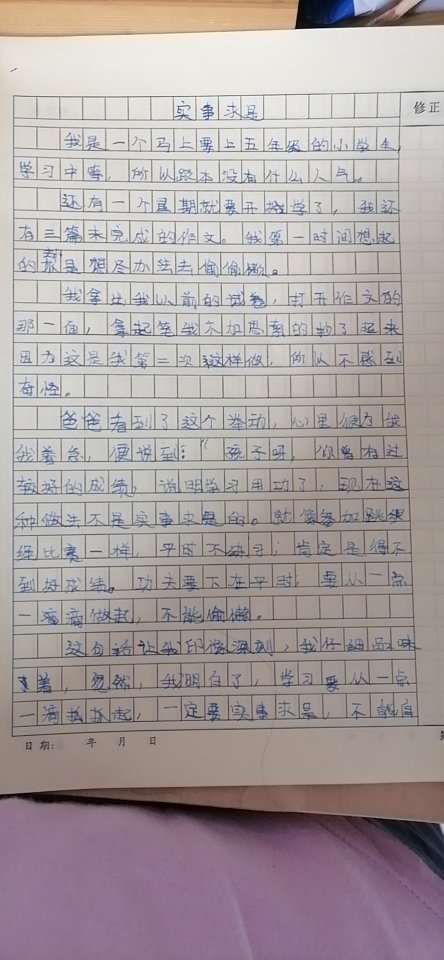 实事求是
修正
我是一个马上要上五年级的小学生,
学习中等,所以跟本没有什么人气。
还有一个星期就要开学了,我还
有三篇未完成的作文。我第一时间想起
的就是想尽办法去偷偷懒。
我拿出我以前的试卷,打开作文的
那一面,拿起笔我不加思索的抄了起来
因为这是我第二次这样做,所以不感到
奇怪。
爸爸看到了这个举动,心里很为我
我着急,便说到:“孩子呀,你曾有过
较好的成绩,说明学习用功了,现在这
种做法不是实事求是的。就像参加跳绳
绳比赛一样,平时不练习;肯定是得不
到好成绩。功夫要下在平时;要从一点
一滴做起,不能偷懒。
这句话让我印像深刻,我仔细品味
着,忽然,我明白了,学习要从一点
一滴抓起,一定要实事求是,不能自
日期: 年 月 日